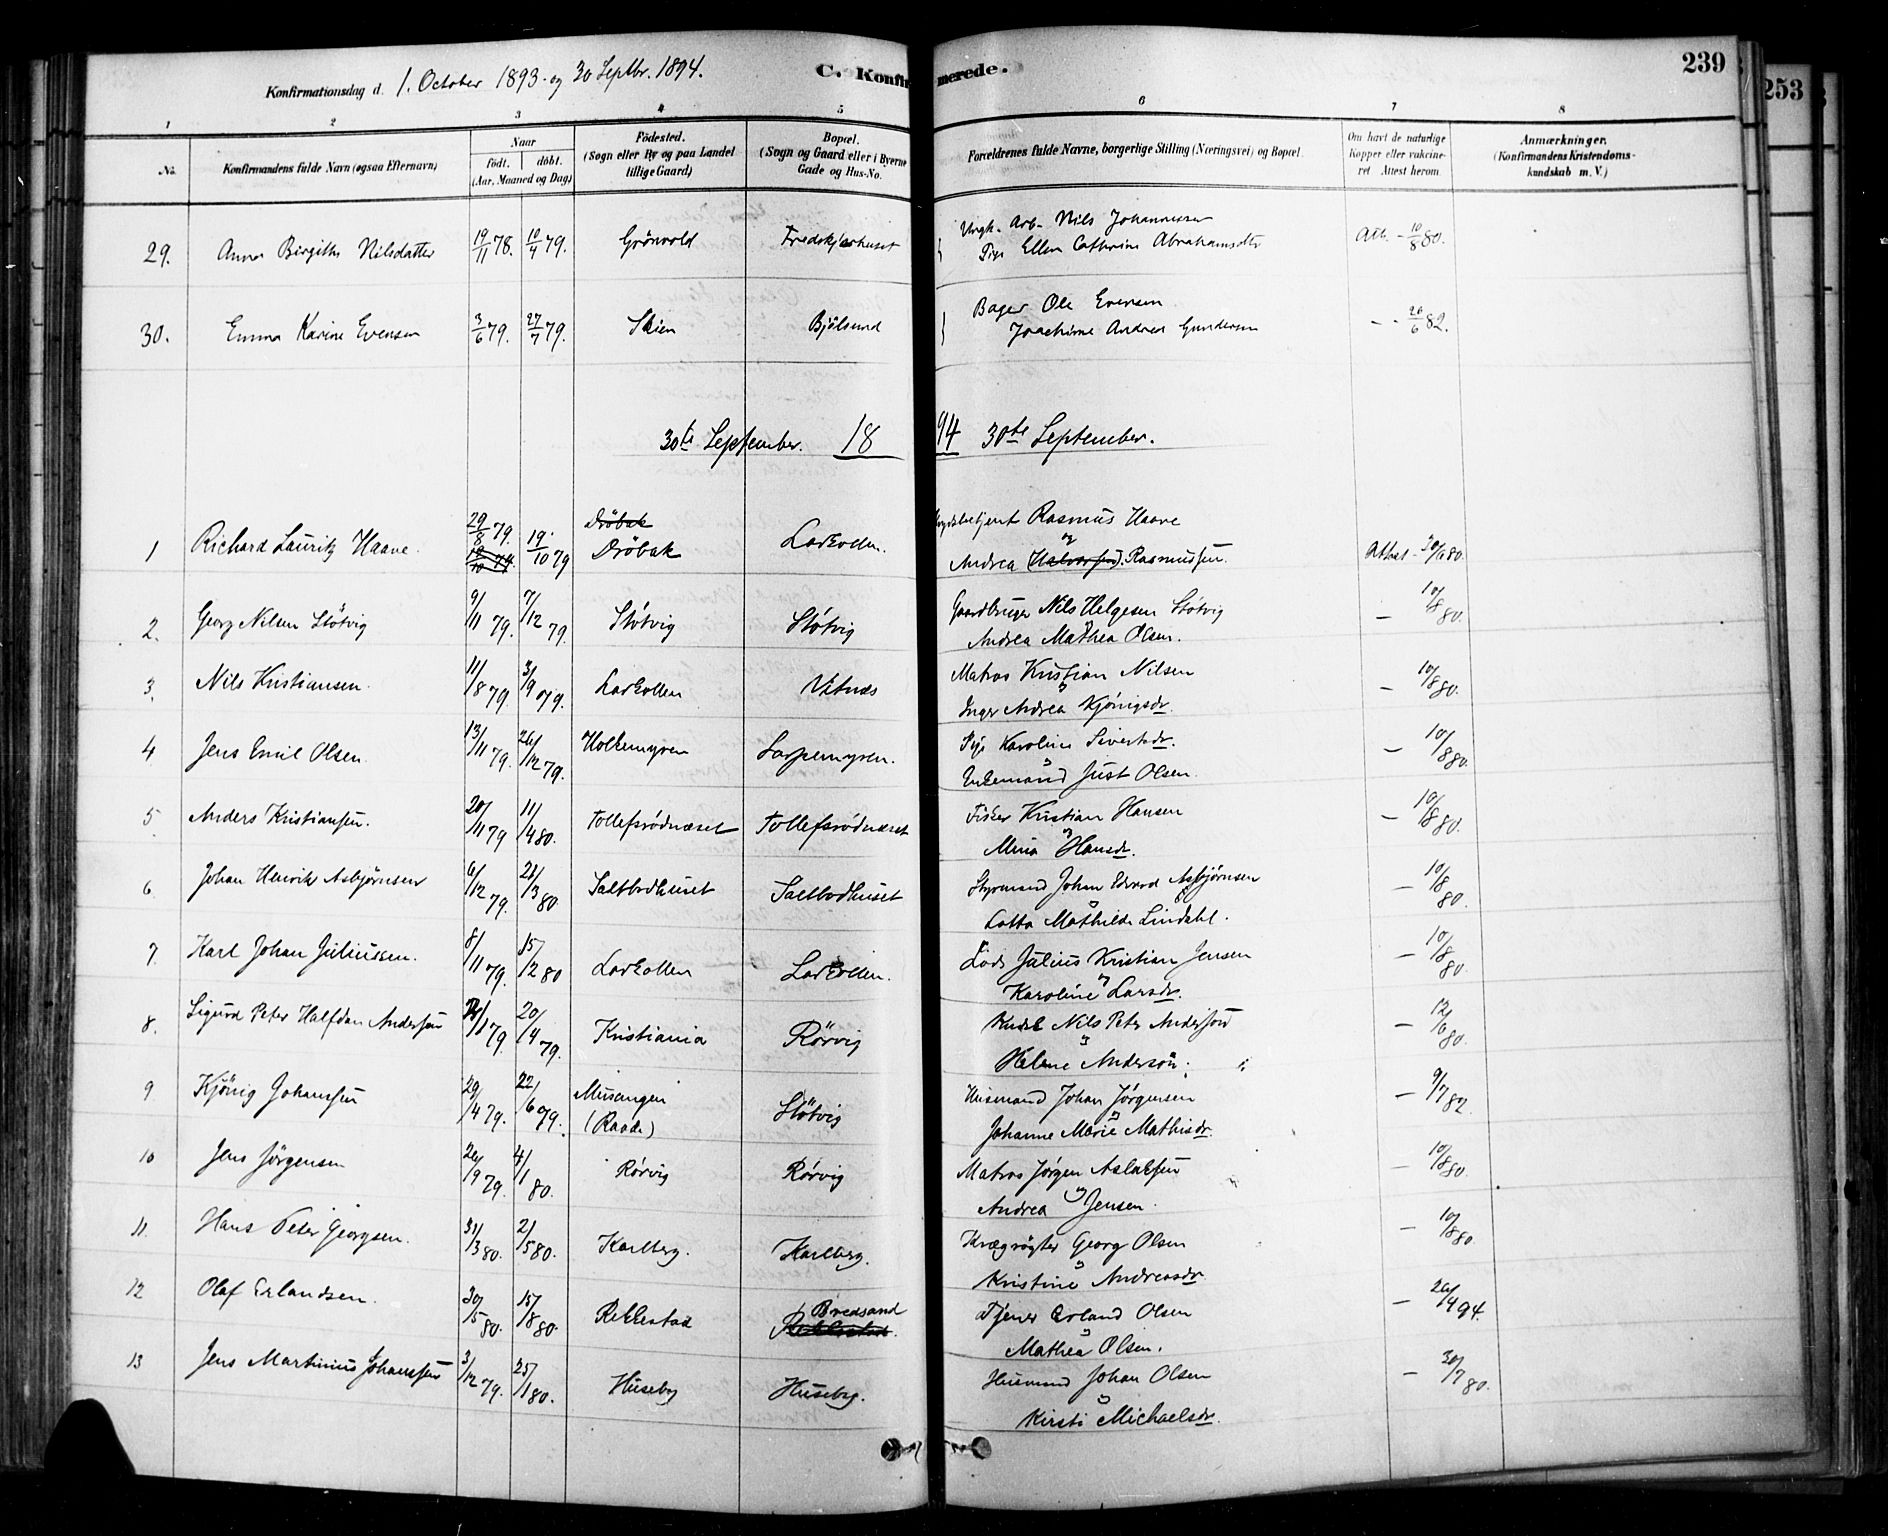 Konfirmationsdag d. 1. October 1893 og 30 Septbr. 1894.
C. Konfirmerede.
239
253
1 2 3 4 5 6 7 8
No.
Konfirmandens fulde Navn (ogsaa Efternavn)
Naar
födt. döbt.
(Aar, Maaned og Dag)
Födested.
(Sogn eller By og paa Landet
tillige Gaard)
Bopæl.
(Sogn og Gaard eller i Byerne
Gade og Hus-No.
Forældrenes fulde Navne, borgerlige Stilling (Næringsvei) og Bopæl.
Om havt de naturlige
Kopper eller vakcine-
ret Attest herom.
Anmærkninger.
(Konfirmandens Kristendoms-
kundskab m. V.)
29. Anna Birgithe Nilsdatter 19/11 78. 10/4 79. Grönvold Fredskjærhuset
Nils Johannessen
Pige Ellen Cathrine Abrahamsdtr
Att. - 10/8 80.
30. Emma Karine Evensen 3/6 79. 27/7 79. Skien Bjölsund
Bager Ole Evensen
Joachime Andrea Gundersen
- - 26/6 82.
30te September. 1894 30te September.
1 Richard Lauritz Haave. 29/8 79. 19/10 79 Dröbak Larkollen.
Rasmus Haave
og
Andrea (Halvorsen) Rasmussen.
Attest - 30/6 80.
2. Georg Nilsen Stötvig 9/11 79. 7/12 79. Støtvig Støtvig
Gaardbruger Nils Helgesen Støtvig
Andrea Mathea Olsen.
- 10/8 80.
3. Nils Kristiansen. 11/8 79. 3/9 79. Larkollen Vatnæs
Matros Kristian Nilsen
Inger Andrea Kjönigsdr.
- 10/8 80.
4 Jens Emil Olsen. 13/11 79. 26/12 79. Holkemyren Sarpemyren.
Pige Karoline Sivertsdr.
Unkemand Just Olsen.
- 10/8 80.
5. Anders Kristiansen. 20/11 79 11/4 80. Tollefsrödnæset Tollefsrödnæset
Fisker Kristian Hansen
Mina Hansdr.
- 10/8 80.
6. Johan Henrik Asbjørnsen 6/12 79. 28/3 80. Saltbodhuset Saltbodhuset
Styrmand Johan Edvard Asbjørnsen
Lotta Mathilde Lindahl.
- 10/8 80.
7. Karl Johan Juliussen. 8/11 79. 15/2 80 Larkollen Larkollen.
Lods Julius Kristian Jensen
Karoline Larsdr.
- 10/8 80.
8. Sigurd Peter Halfdan Andersen 1 79. 20/4 79. Kristiania Rörvig
Nils Peter Andersen
Helene Andersen.
- 12/6 80.
9 Kjönig Johanssen 29/4 79. 22/6 79. Missingen
(Raade)
Stötvig
Husmand Johan Jörgensen
Johanne Marie Mathisdr.
- 9/7 82.
10 Jens Jörgensen 26/9 79. 4/1 80. Rörvig Rörvig
Matros Jørgen Aslaksen
Andrea Jensen.
- 10/8 80.
11. Hans Peter Georgsen. 31/3 80. 2/5 80. Karlberg. Karlberg.
Krægrögter Georg Olsen
Kristine Andreasdr.
- 10/8 80
12 Olaf Erlandsen. 30/5 80. 15/8 80. Rekkestad Bredsand
Rekkestad.
Tjener Erland Olsen
Mathea Olsen.
- 26/4 94.
13 Jens Martinius Johanssen 3/12 79. 25/1 80. Huseby Huseby.
Husmand Johan Olsen
Kirsti Michaelsdr.
- 30/7 80.